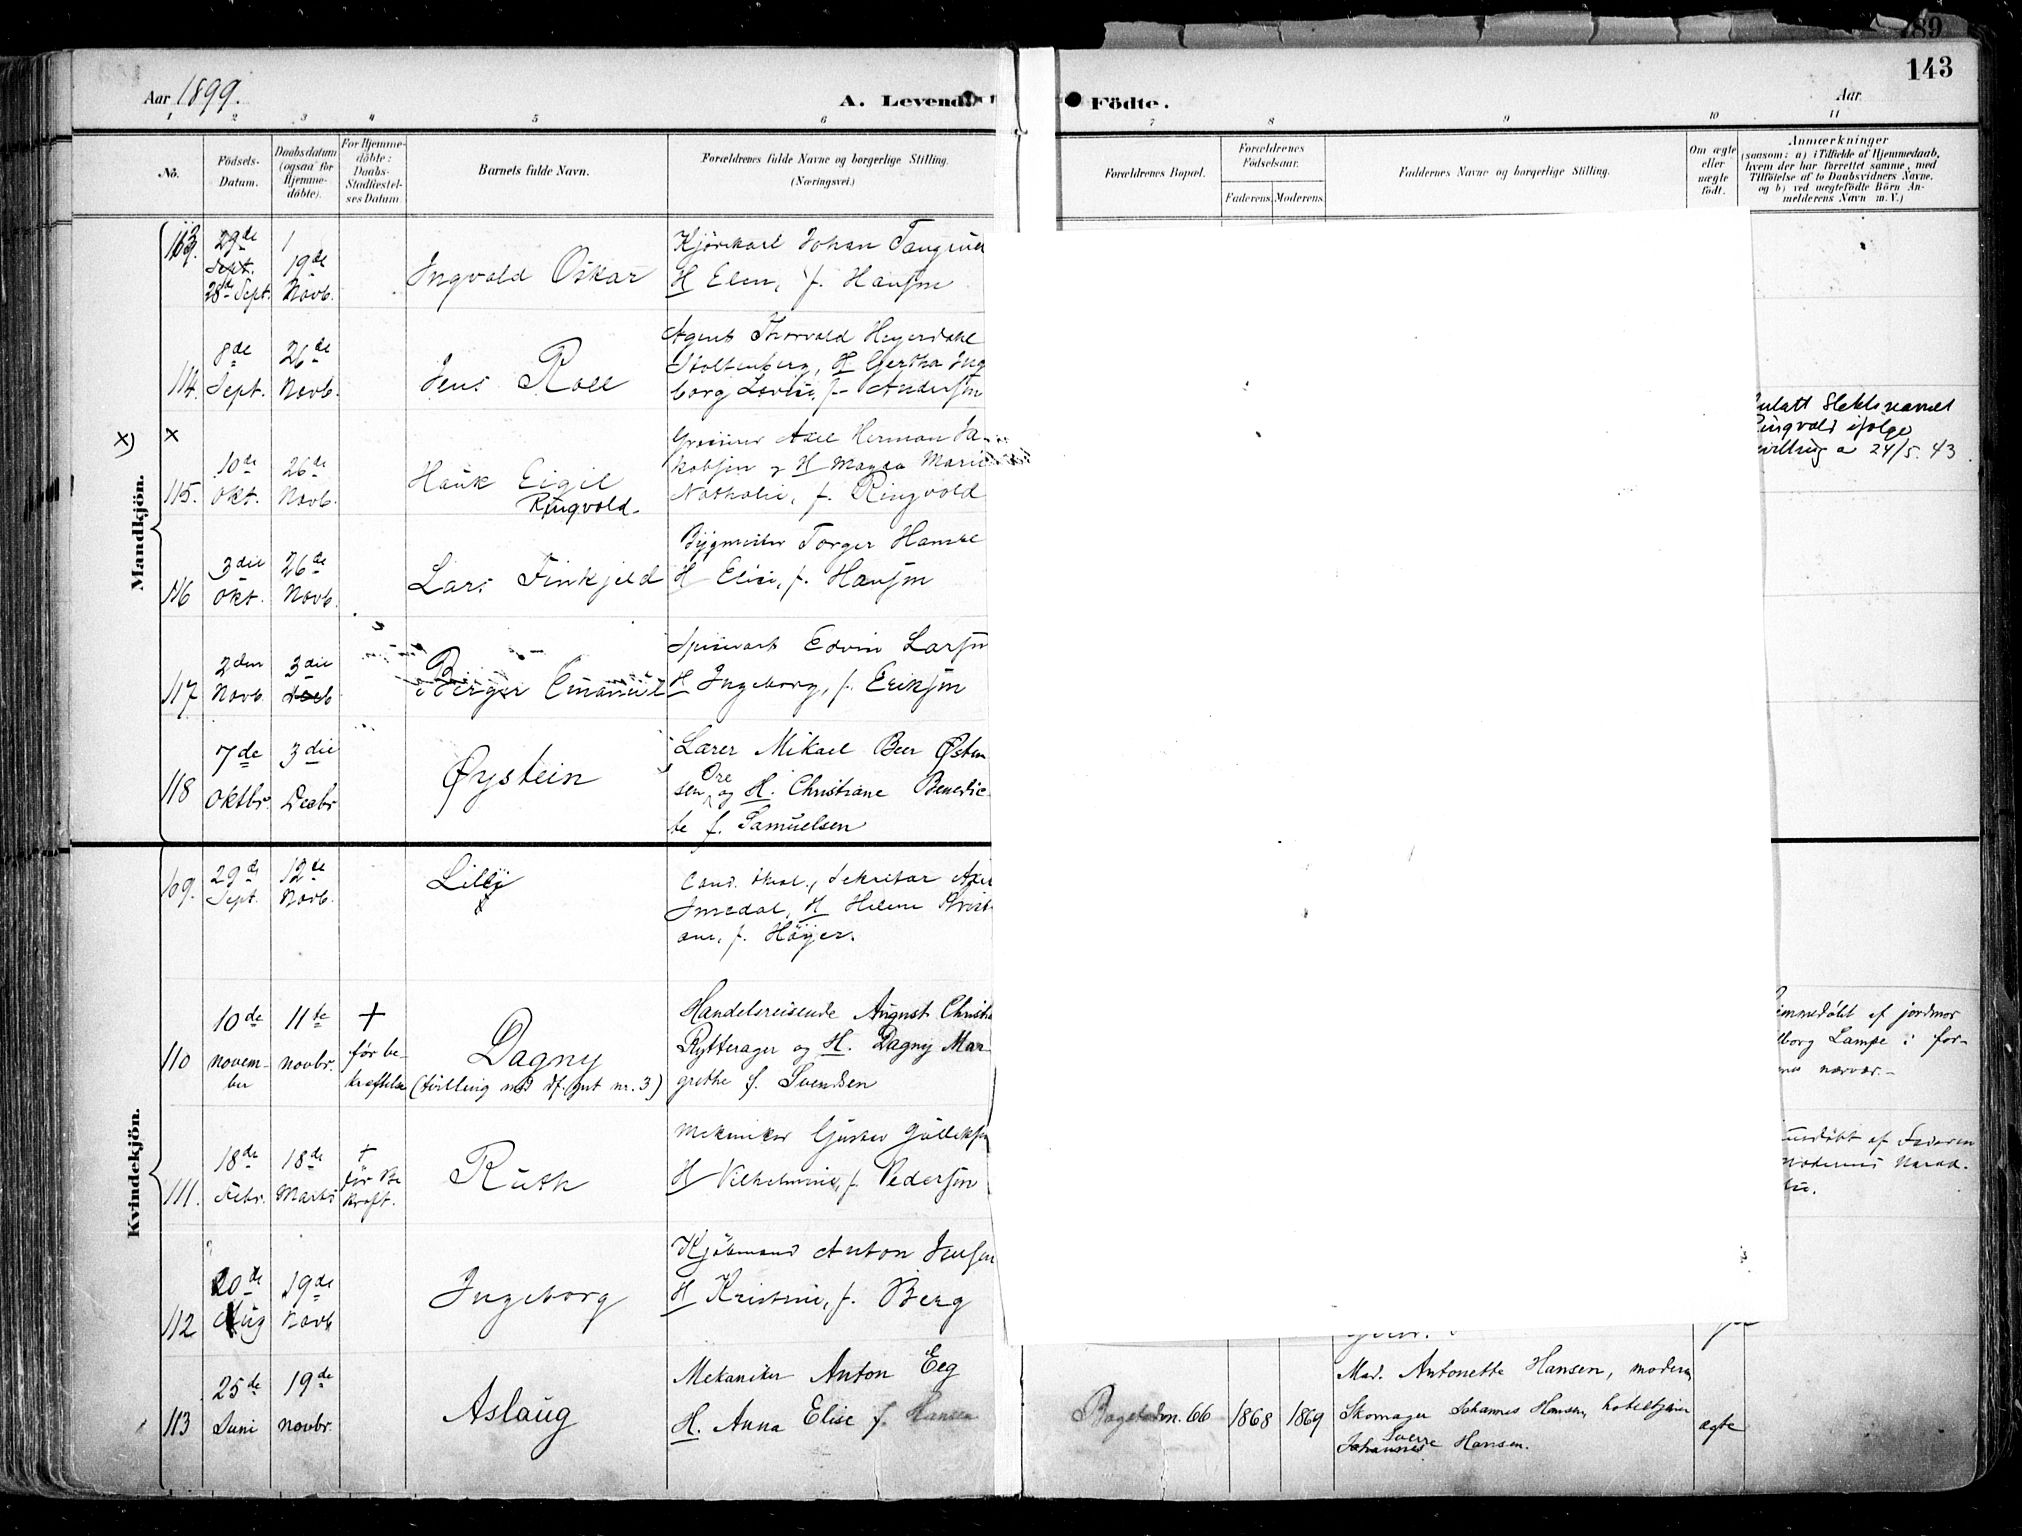 89
143
Aar 1899.
A. Levende
Födte.
Aar
1 2 3 4 5 6 7 8 9 10 11
No.
Födsels-
Datum.
Daabsdatum
(ogsaa for
Hjemme-
döbte).
For Hjemme-
döbte:
Daabs-
Stadfæstel-
ses Datum.
Barnets fulde Navn.
Forældrenes fulde Navne og borgerlige Stilling.
(Næringsvei.)
Forældrenes Bopæl.
Forældrenes
Födselsaar.
Faderens. Moderens.
Faddernes Navne og borgerlige Stilling.
Om ægte
eller
uægte
födt.
Anmærkninger
(saasom: a) i Tilfælde af Hjemmedaab,
hvem der har forrettet samme, med
Tilföielse af to Daabsvidners Navne,
og b) ved uægtefödte Börn An-
melderens Navn m. V.)
Mandkjön.
113.
29de
Sept.
28de Sept.
19de
Novb.
Ingvald Oskar
Kjørekarl Johan
H Elen, f. Hansen
114.
8de
Sept.
26de
Novb.
Jens Roll
Agent Thorvald Heyerdahl
Stoltenberg, H Gertha Ing
borg Lovise, f. Andersen
x) x
115.
10de
Okt.
26de
Novb.
Hauk Eigil
Ringvold
Axel Herman Ja-
kobsen og H Magda Marie
Nathalie, f. Ringvold
slektsnavnet
ifølge
a 24/5. 43
116
3die
Okt.
26de
Novb.
Lars Finkjeld
Bygmester Torger Hamre
H Elise, f. Hansen
117
2den
Novb.
3die
Decb
Birger Emanuel
Spisevært Edvin Larsen
H Ingeborg, f. Eriksen
118
7de
Oktbr.
3die
Decbr
Øystein
Lærer Mikael Beer Østen
sen Ore og H. Christiane Benedic
te f. Samuelsen
Kvindekjön.
109.
29de
Sept.
12te
Novb.
Lilly
x
Cand. , Sekretær Axel
H Helene
ane, f. Höyer.
110
10de
novem-
ber
11te
novbr.
+
før be-
kræftelse
Dagny
(tvilling med df. gut nr. 3)
Handelsreisende August Christia
Rytterager og H. Dagny Mar
grethe f. Svendsen
jemmedøbt af jordmor
lborg Lampe i for-
nærvær.-
111.
18de
Febr.
18de
Marts
+
før Be
kræft.
Ruth
Mekaniker Gustav Gulliksen
H Vilhelmine, f. Pedersen
døbt af Faderen
Moderens
112
20de
Aug
19de
Novb
Ingeborg
Kjøbmand Anton Jensen
H Kristine, f. Berg
113
25de
Juni
19de
novbr.
Aslaug
Mekaniker Anton Eeg
H. Anna Elise f. Hansen
66
1868
1869
Mad. Antonette Hansen, moderen,
Skomager Johannes Hansen, hoteltjener
Sverre
Johannes Hansen.
ægte